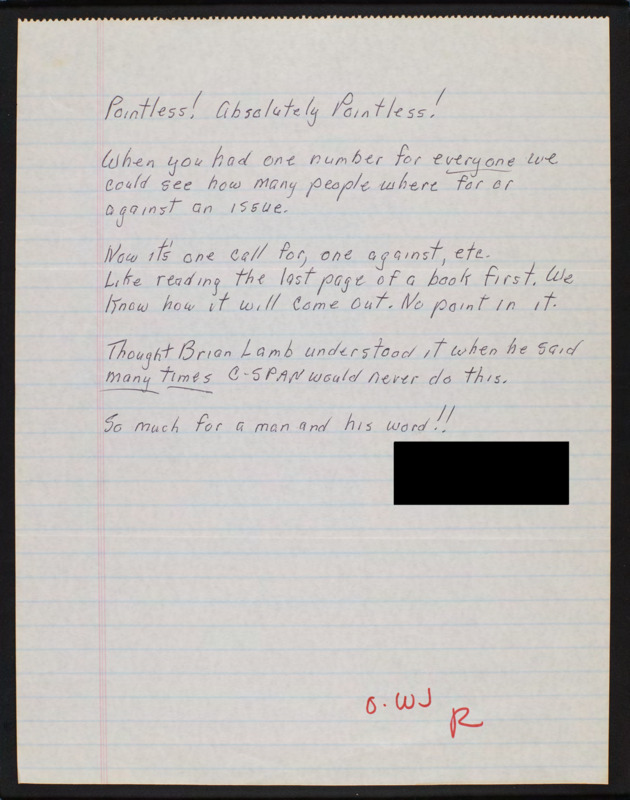 Pointless! Absolutely Pointless!
When you had one number for everyone we
could see how many people where for or
against an issue.
Now it's one call for, one against, etc.
Like reading the last page of a book first. We
know how it will come out. No point in it.
Thought Brian Lamb understood it when he said
many times C-SPAN would never do this.
So much for a man and his word!!
O. WJ
R